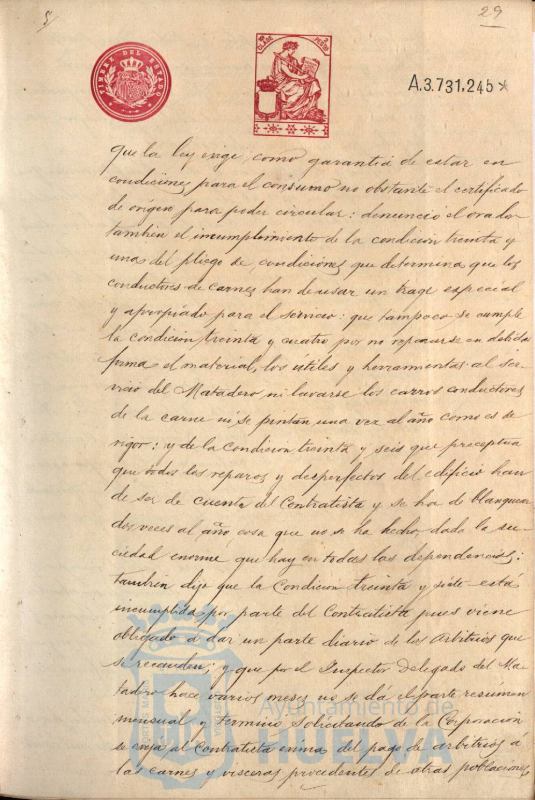 29
TIMBRE DEL ESTADO
A.3.731,245
que la ley exige, como garantia de estar en
condiciones para el consumo no obstante el certificado
de origen para poder circular: denunció el orador
tambien el incumplimiento de la condicion treinta y
una del pliego de condiciones que determina que los
conductores de carnes han de usar un trage especial
y apropiado para el servicio: que tampoco se cumple
la condicion treinta y cuatro por no repararse en debida
forma el material, los útiles y herramientas al ser-
vicio del Matadero ni lavarse los carros conductores
de la carne ni se pintan una vez al año como es de
rigor: y de la condicion treinta y seis que preceptua
que todos los reparos y desperfectos del edificio han
de ser de cuenta del Contratista y se ha de blanquear
dos veces al año, cosa que no se ha hecho, dada la su-
ciedad enorme que hay en todas las dependencias:
tambien dijo que la Condicion treinta y siete está
incumplida por parte del Contratista pues viene
obligado a dar un parte diario de los Arbitrios que
se recauden; y que por el Inspector Delegado del Ma-
tadero hace varios meses no se dá el parte resúmen
mensual y terminó solicitando de la Corporacion
se exija al Contratista del pago de arbitrios á
las carnes y visceras procedentes de otras poblaciones,
Ayuntamiento de
HUELVA